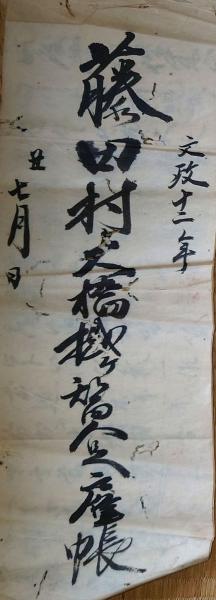 文政十二年
藤田村橋掛ケ替人足帳
丑七月日